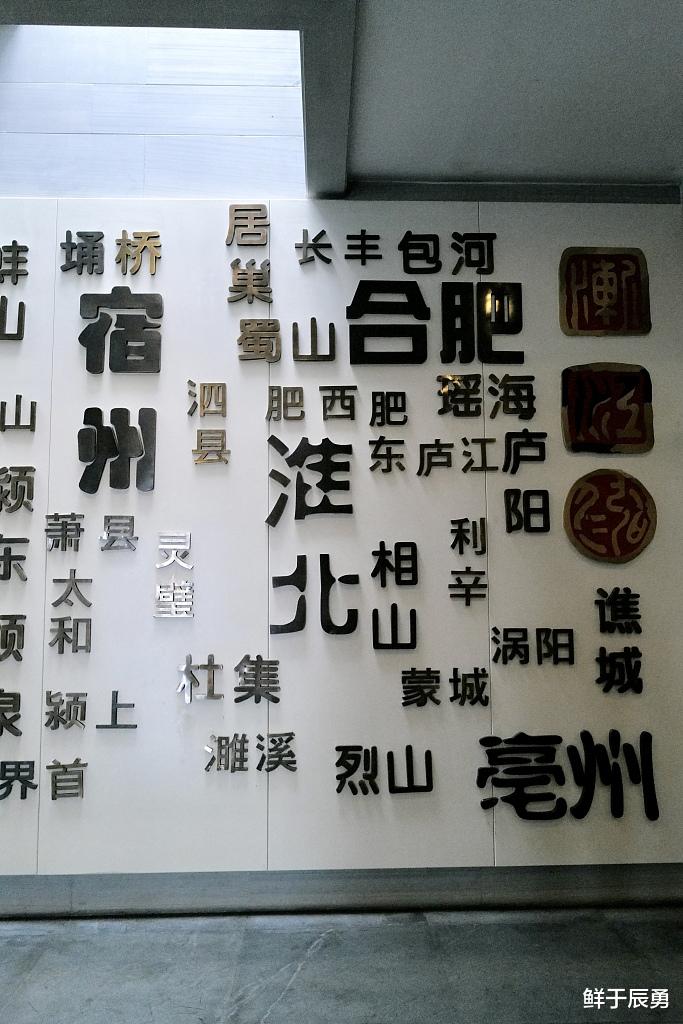 埇桥
宿州
居巢
蜀山
长丰
包河
合肥
泗县
肥西
肥东
瑶海
庐江
庐阳
淮北
萧县
灵璧
太和
相山
利辛
涡阳
谯城
杜集
蒙城
颍上
濉溪
烈山
亳州
蚌山
山
颍东
泉
界首
鲜于辰勇